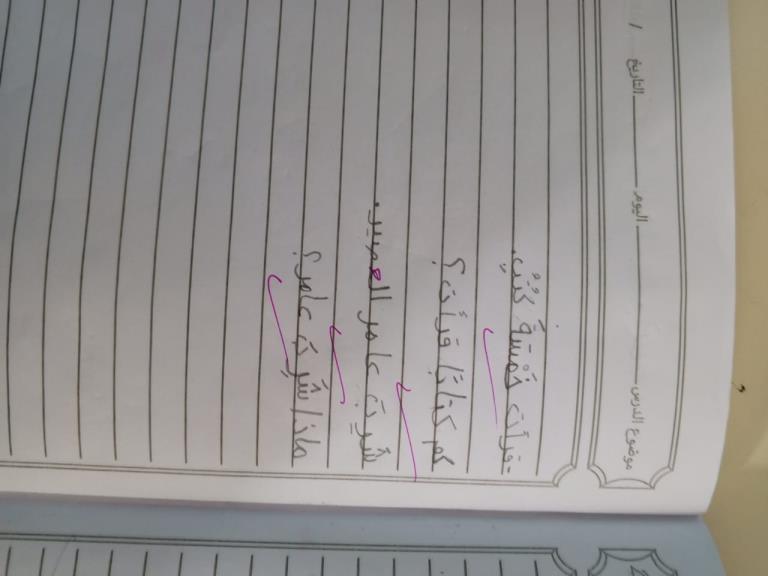 موضوع الدرس اليوم التاريخ /
- قرأت خَمْسَةَ كُتُبٍ.
كم كتابًا قرأت ؟
شَرِبَ عامر العصير.
ماذا شَرِبَ عامر؟
2